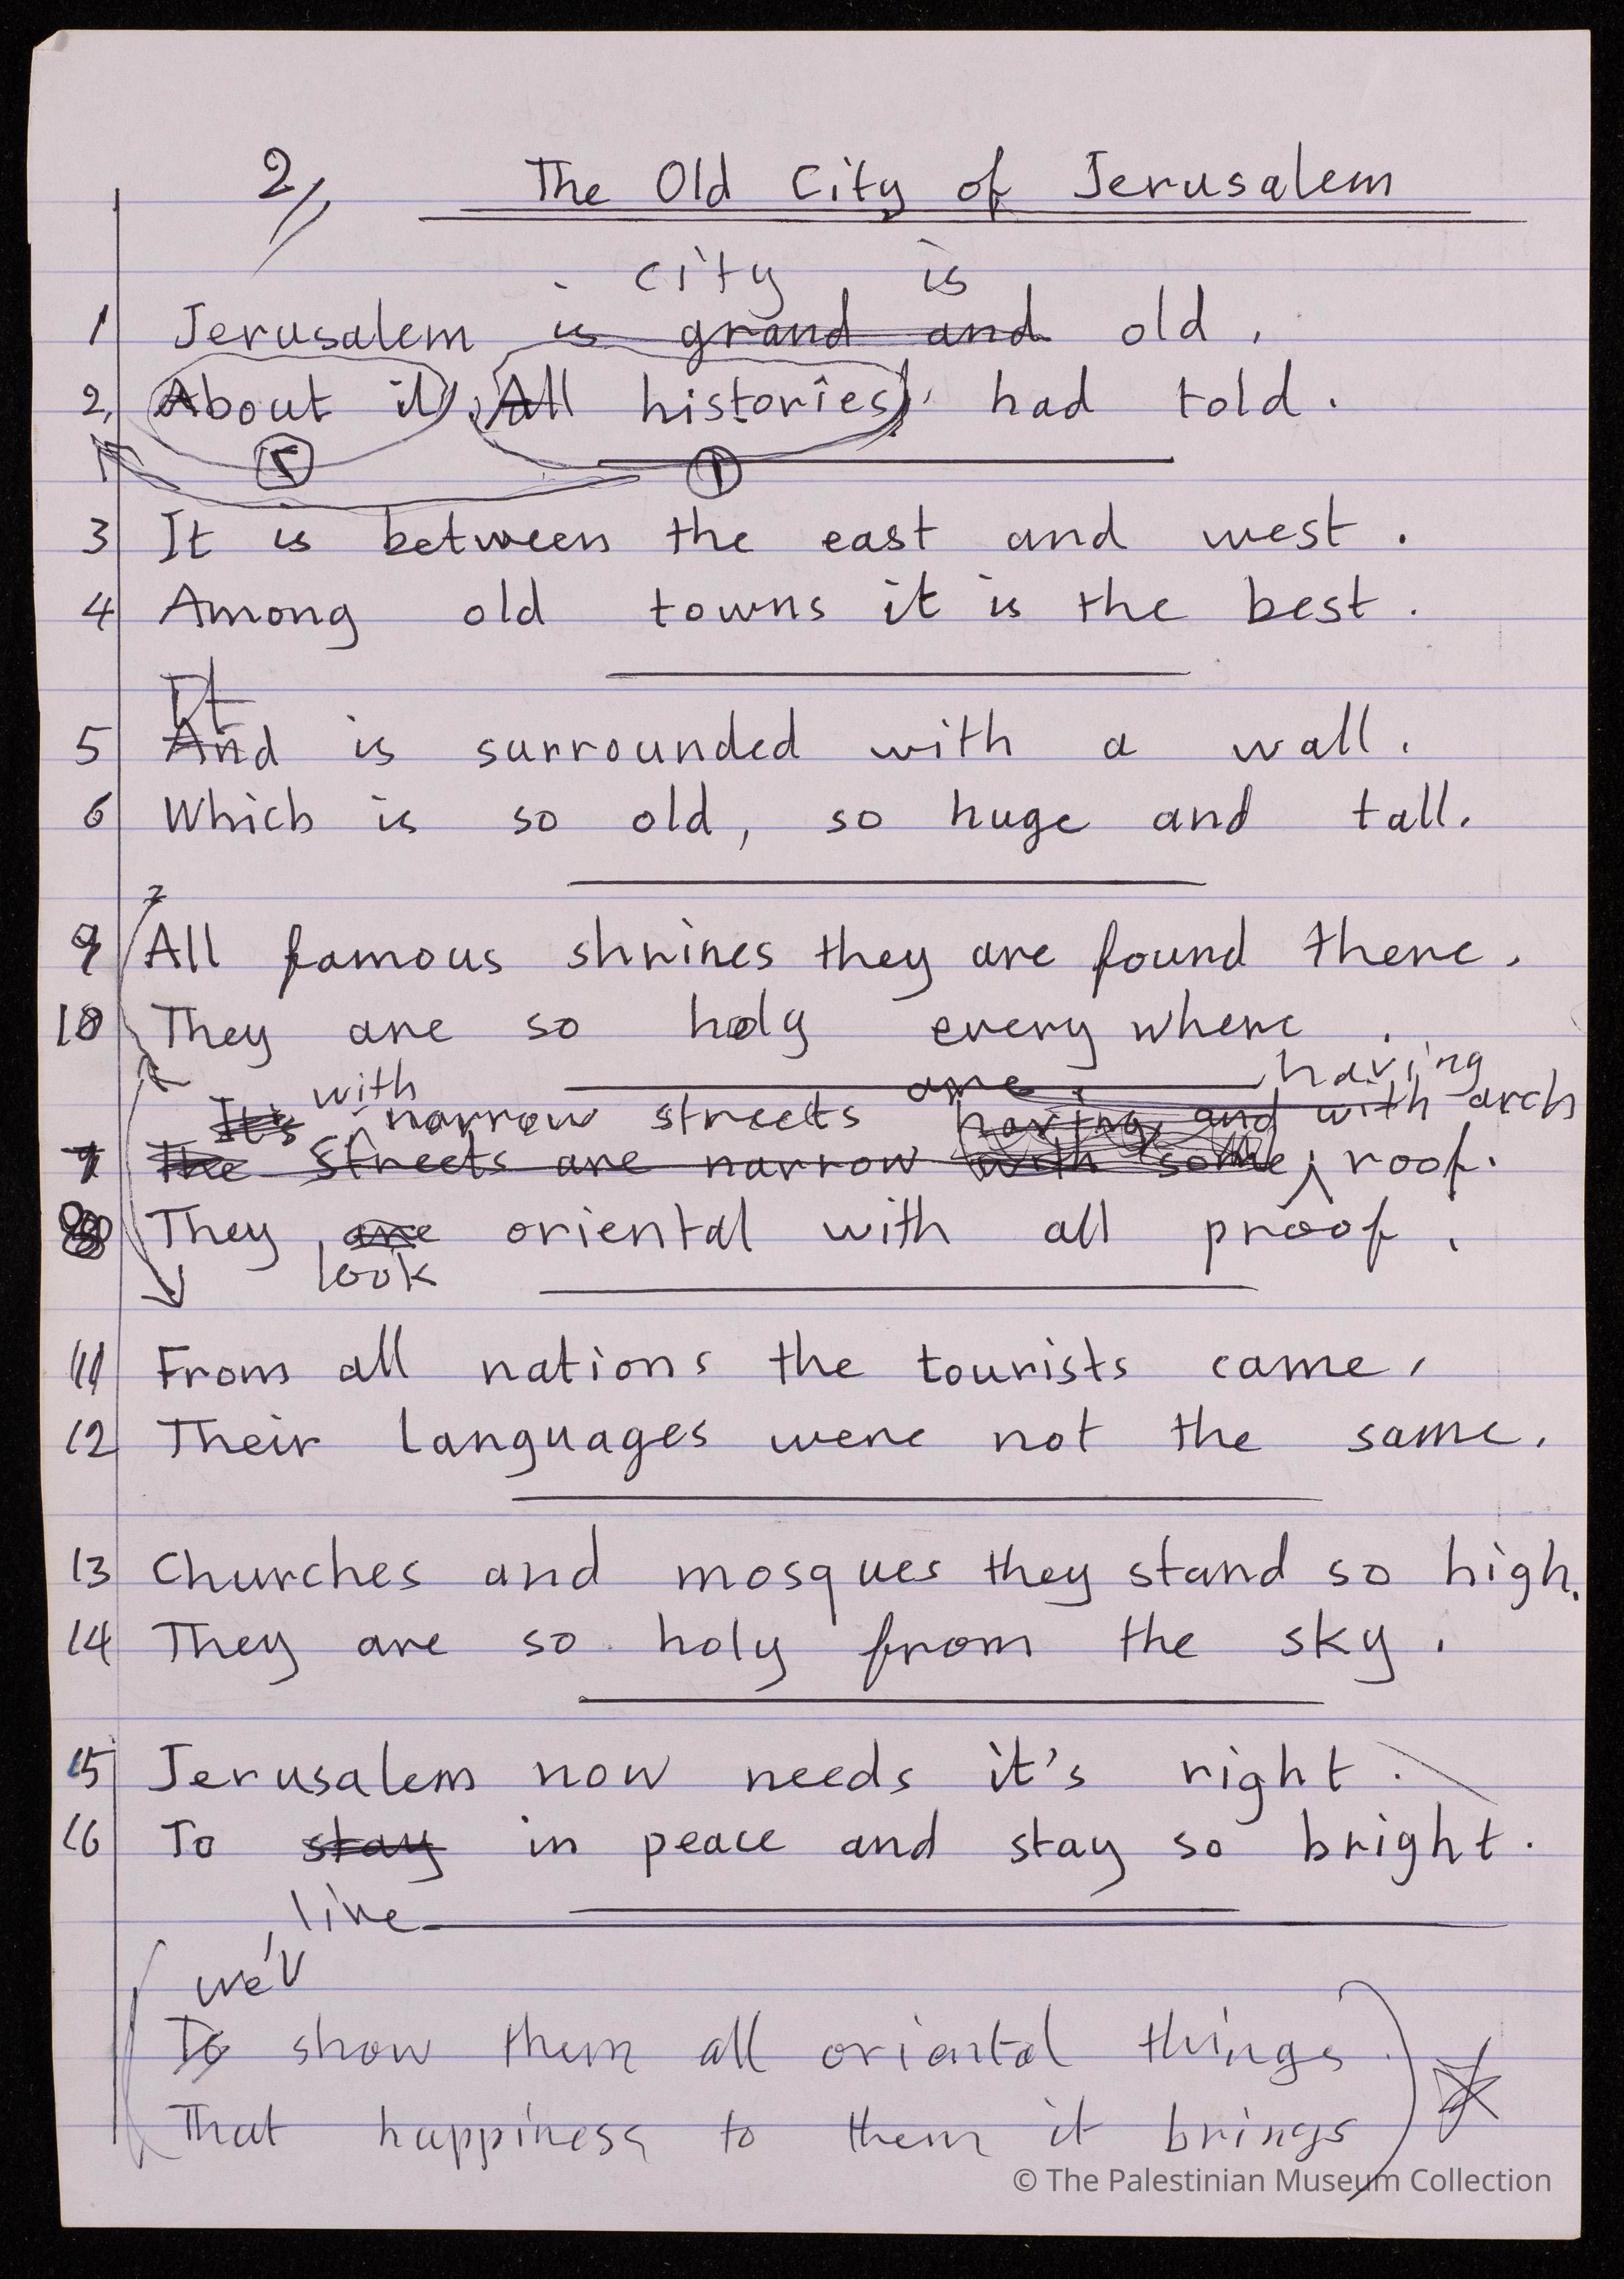 2// The Old City of Jerusalem
city is
1 Jerusalem is grand and old.
2, About it, All histories, had told.
5 1
3 It is between the east and west.
4 Among old towns it is the best.
It
5 And is surrounded with a wall.
6 Which is so old, so huge and tall.
9 All famous shrines they are found there.
10 They are so holy every where.
are having
It's with narrow streets having and with arch
7 The Streets are narrow with some, roof.
8 They are oriental with all proof.
look
11 From all nations the tourists came,
12 Their languages were not the same.
13 Churches and mosques they stand so high.
14 They are so holy from the sky.
15 Jerusalem now needs it's right.
16 To stay in peace and stay so bright.
live
we'll
To show them all oriental things
That happiness to them it brings
© The Palestinian Museum Collection